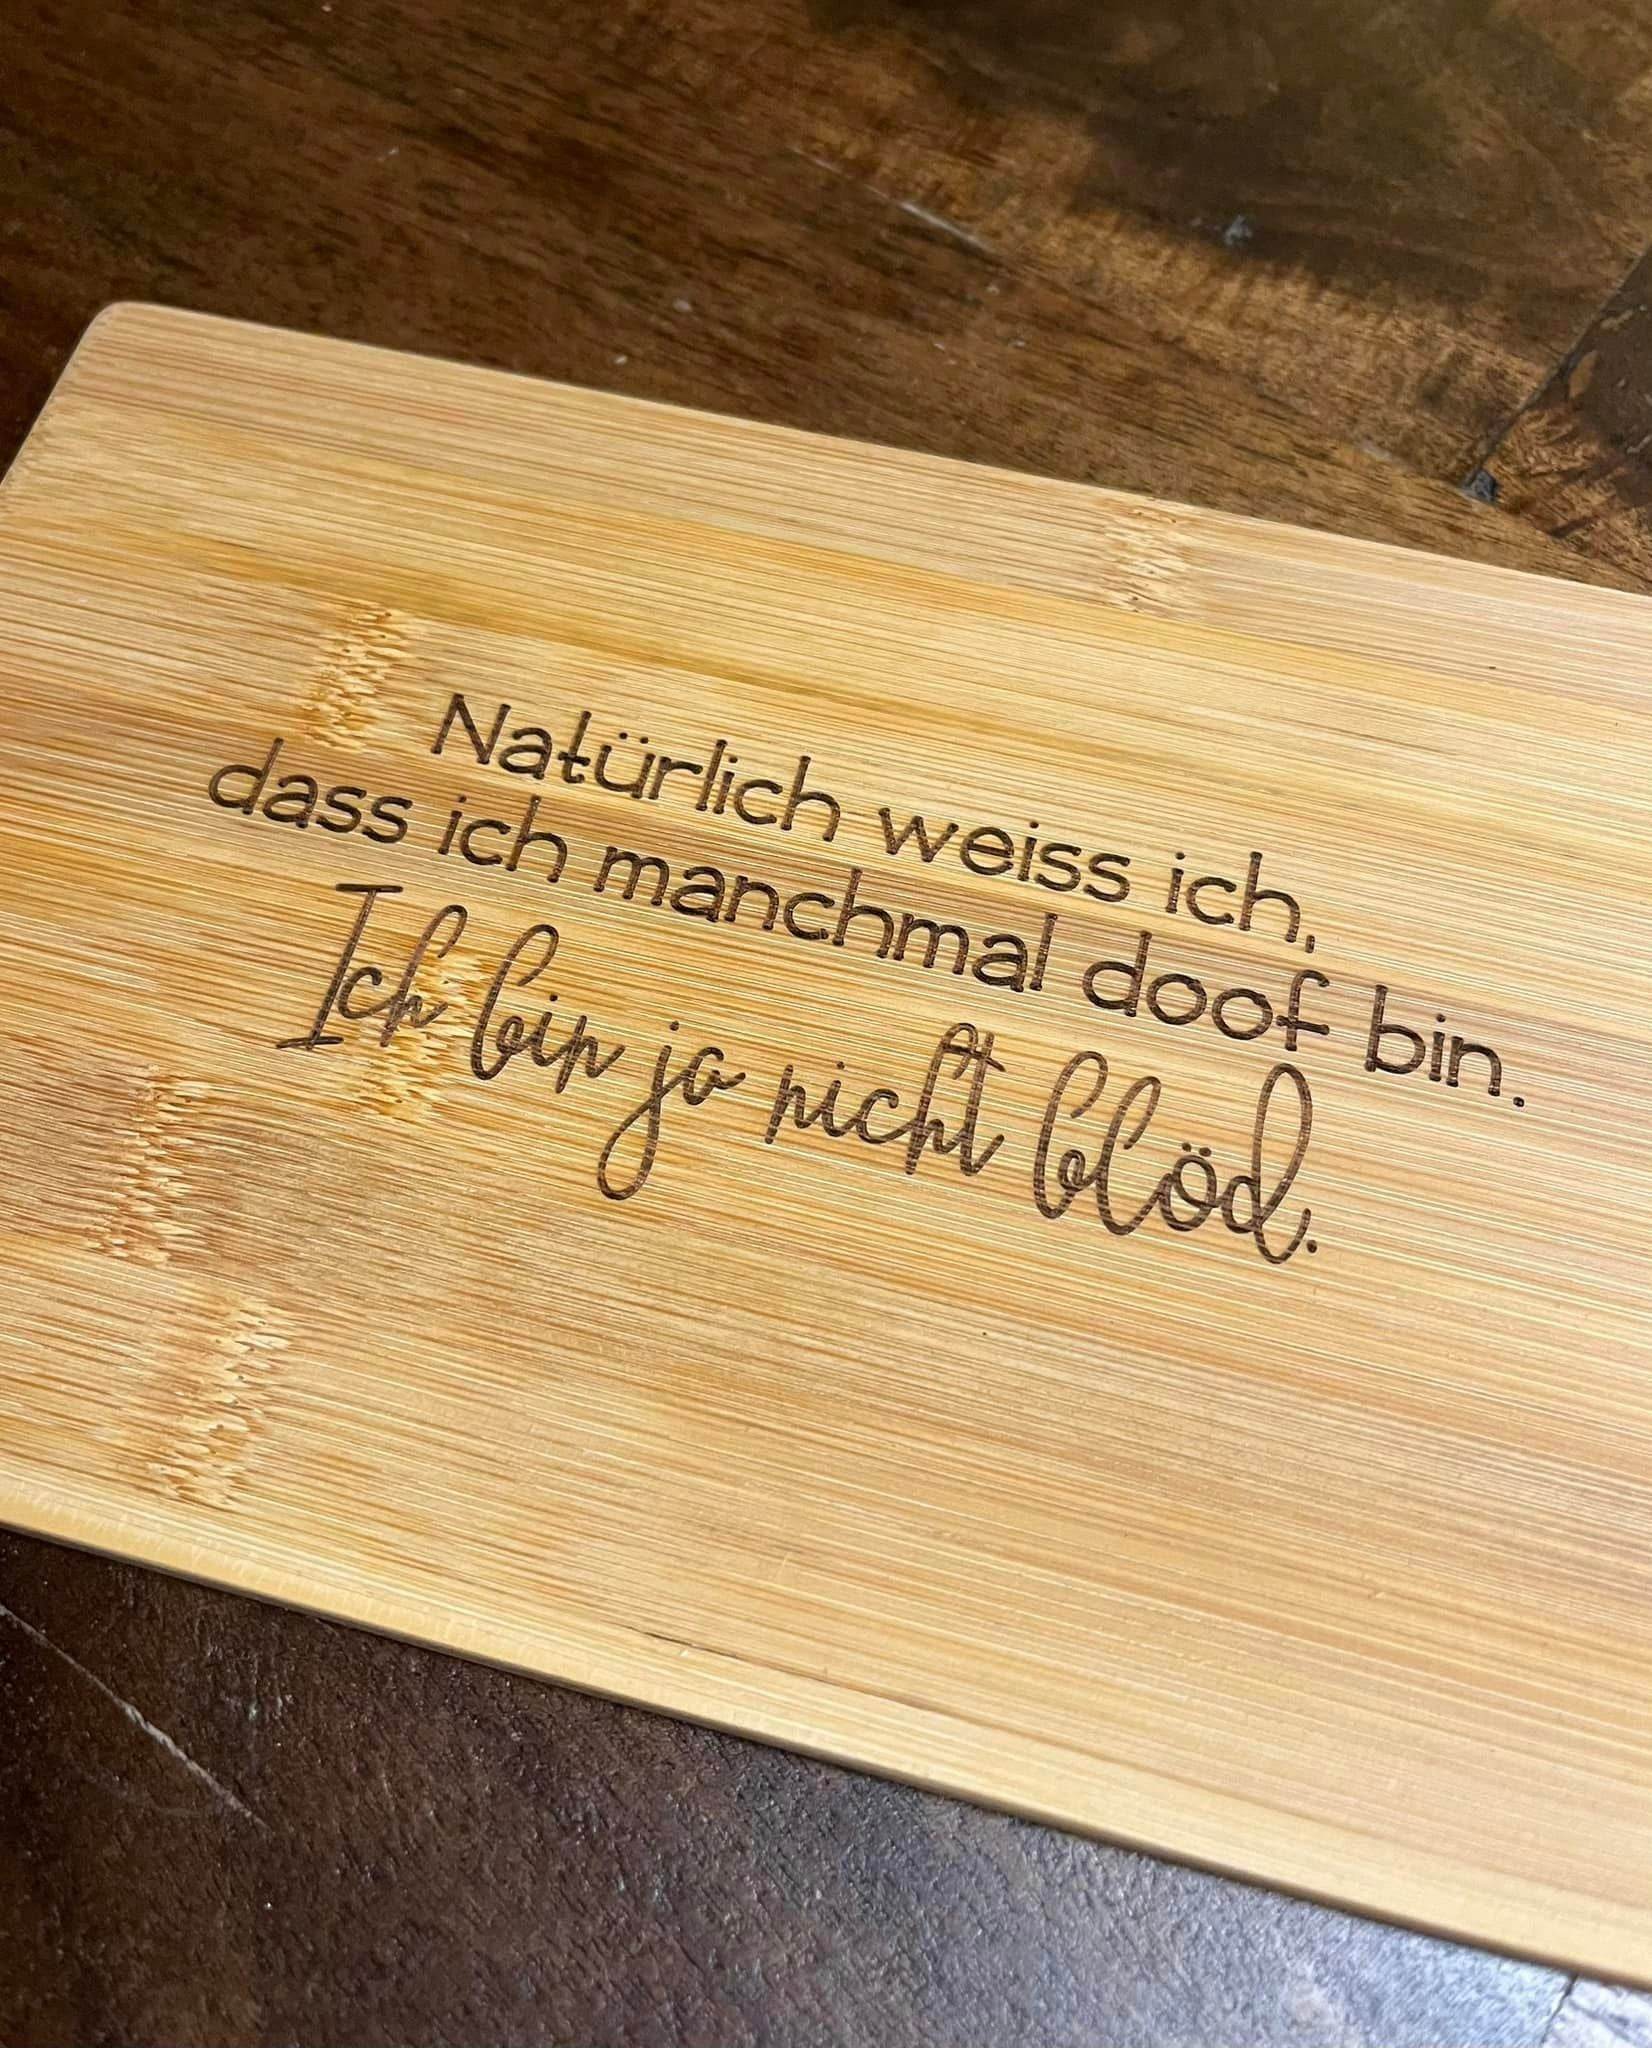 Natürlich weiss ich,
dass ich manchmal doof bin.
Ich bin ja nicht blöd.